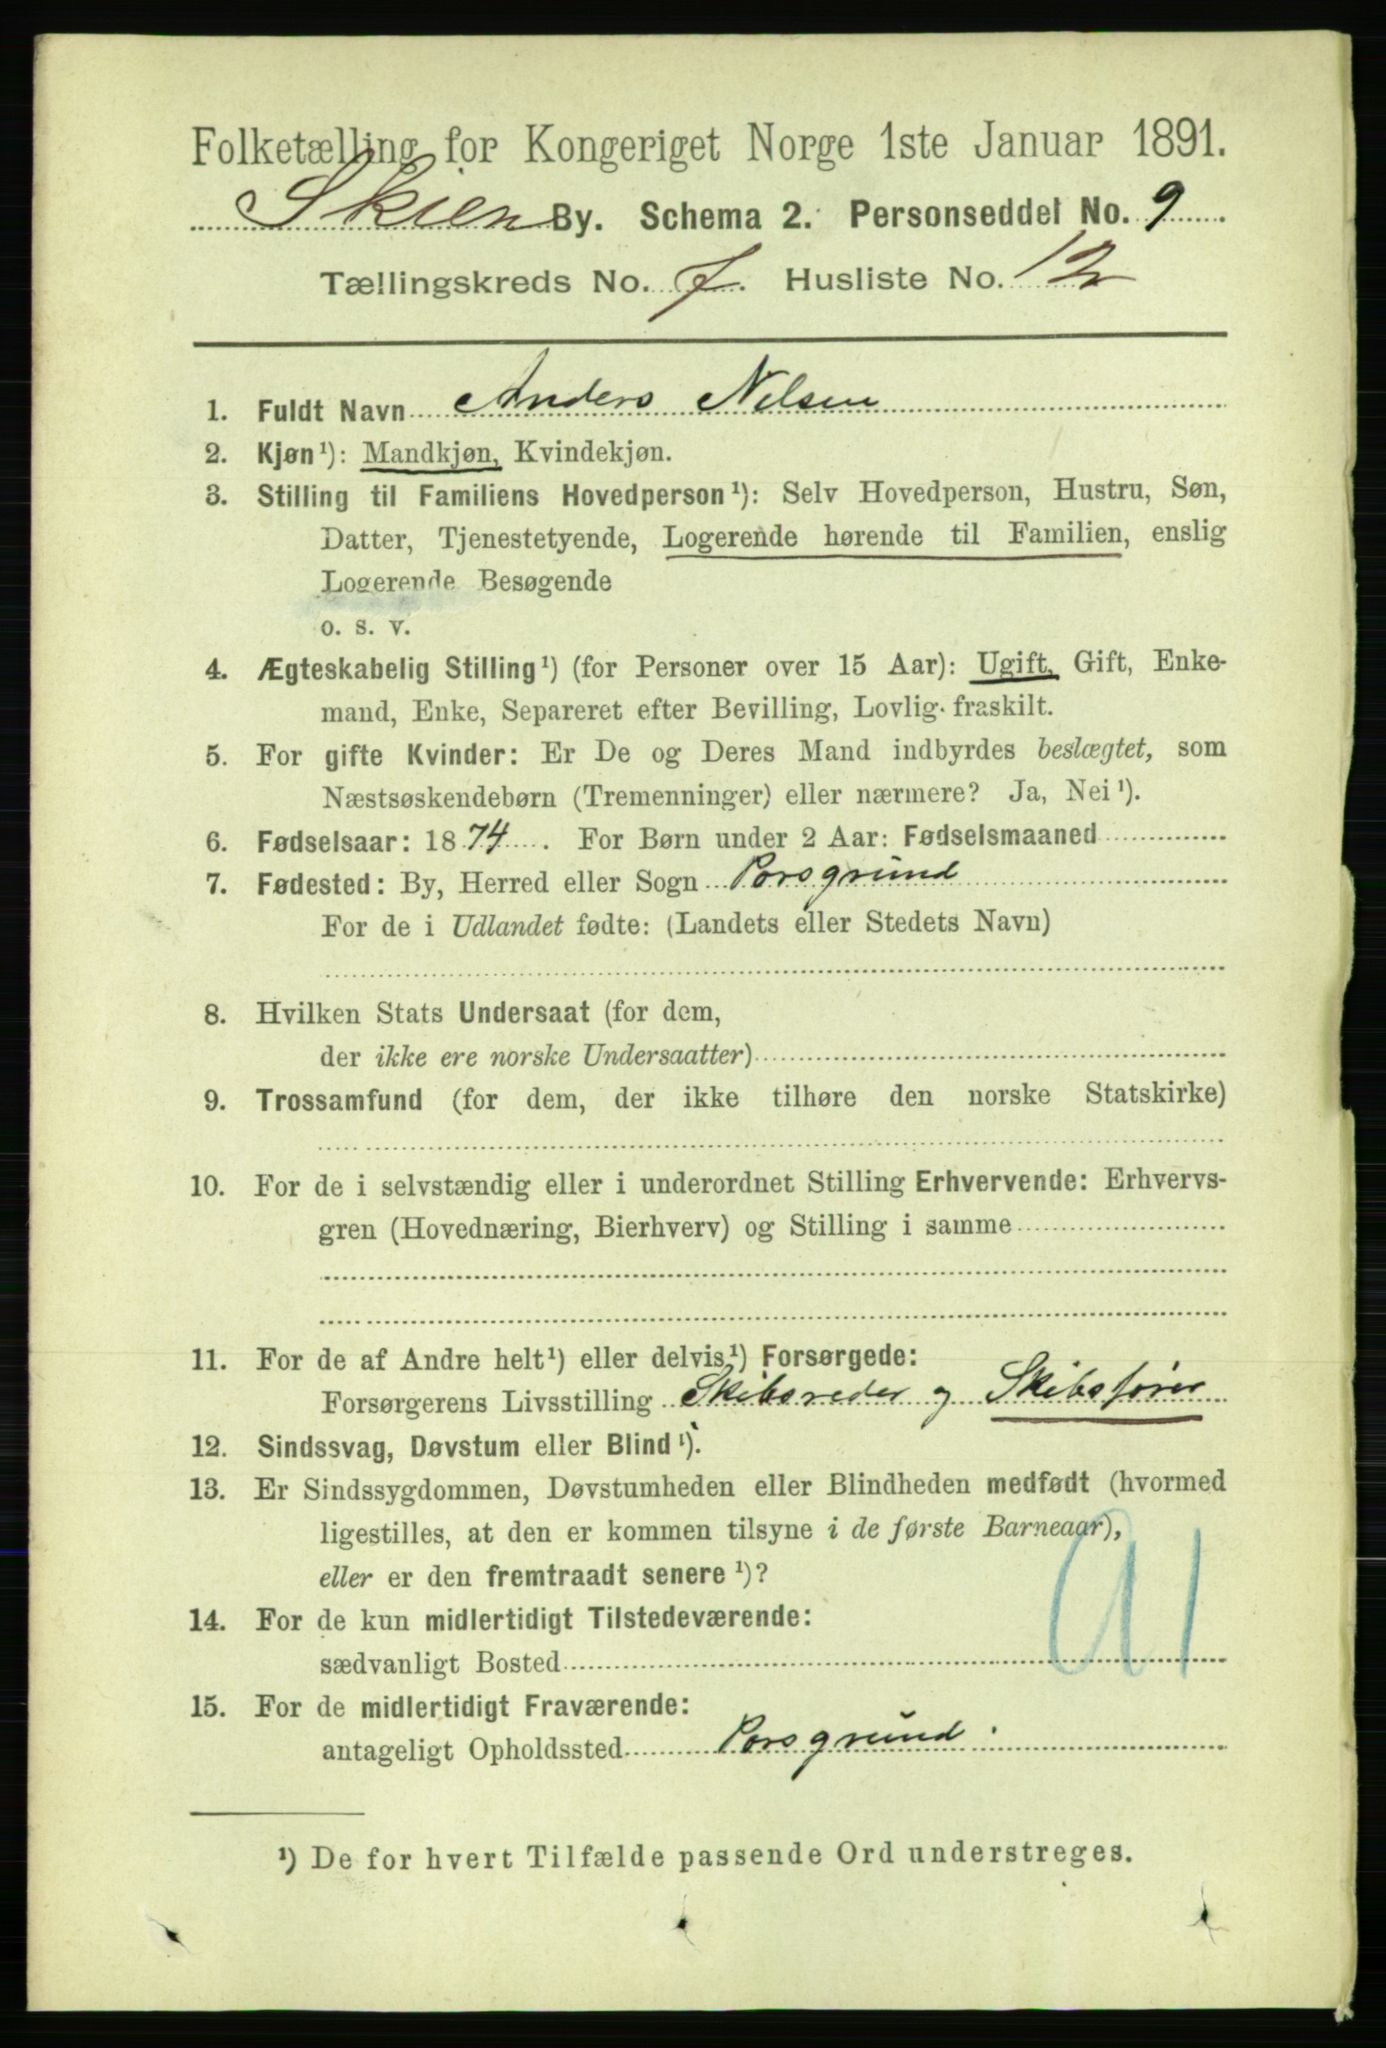 Folketælling for Kongeriget Norge 1ste Januar 1891.
Skien By. Schema 2. Personseddel No. 9
Tællingskreds No. 7. Husliste No. 12
1. Fuldt Navn Anders Nelsen
2. Kjøn¹): Mandkjøn, Kvindekjøn.
3. Stilling til Familiens Hovedperson¹): Selv Hovedperson, Hustru, Søn,
Datter, Tjenestetyende, Logerende hørende til Familien, enslig
Logerende Besøgende
o. s. v.
4. Ægteskabelig Stilling¹) (for Personer over 15 Aar): Ugift, Gift, Enke-
mand, Enke, Separeret efter Bevilling, Lovlig fraskilt.
5. For gifte Kvinder: Er De og Deres Mand indbyrdes beslægtet, som
Næstsøskendebørn (Tremenninger) eller nærmere? Ja, Nei¹).
6. Fødselsaar: 1874. For Børn under 2 Aar: Fødselsmaaned
7. Fødested: By, Herred eller Sogn Porsgrund
For de i Udlandet fødte: (Landets eller Stedets Navn)
8. Hvilken Stats Undersaat (for dem,
der ikke ere norske Undersaatter)
9. Trossamfund (for dem, der ikke tilhøre den norske Statskirke)
10. For de i selvstændig eller i underordnet Stilling Erhvervende: Erhvervs-
gren (Hovednæring, Bierhverv) og Stilling i samme
11. For de af Andre helt¹) eller delvis¹) Forsørgede:
Forsørgerens Livsstilling Skibsreder og Skibsfører
12. Sindssvag, Døvstum eller Blind¹).
13. Er Sindssygdommen, Døvstumheden eller Blindheden medfødt (hvormed
ligestilles, at den er kommen tilsyne i de første Barneaar),
eller er den fremtraadt senere¹)?
14. For de kun midlertidigt Tilstedeværende:
sædvanligt Bosted
15. For de midlertidigt Fraværende:
antageligt Opholdssted Porsgrund.
¹) De for hvert Tilfælde passende Ord understreges.